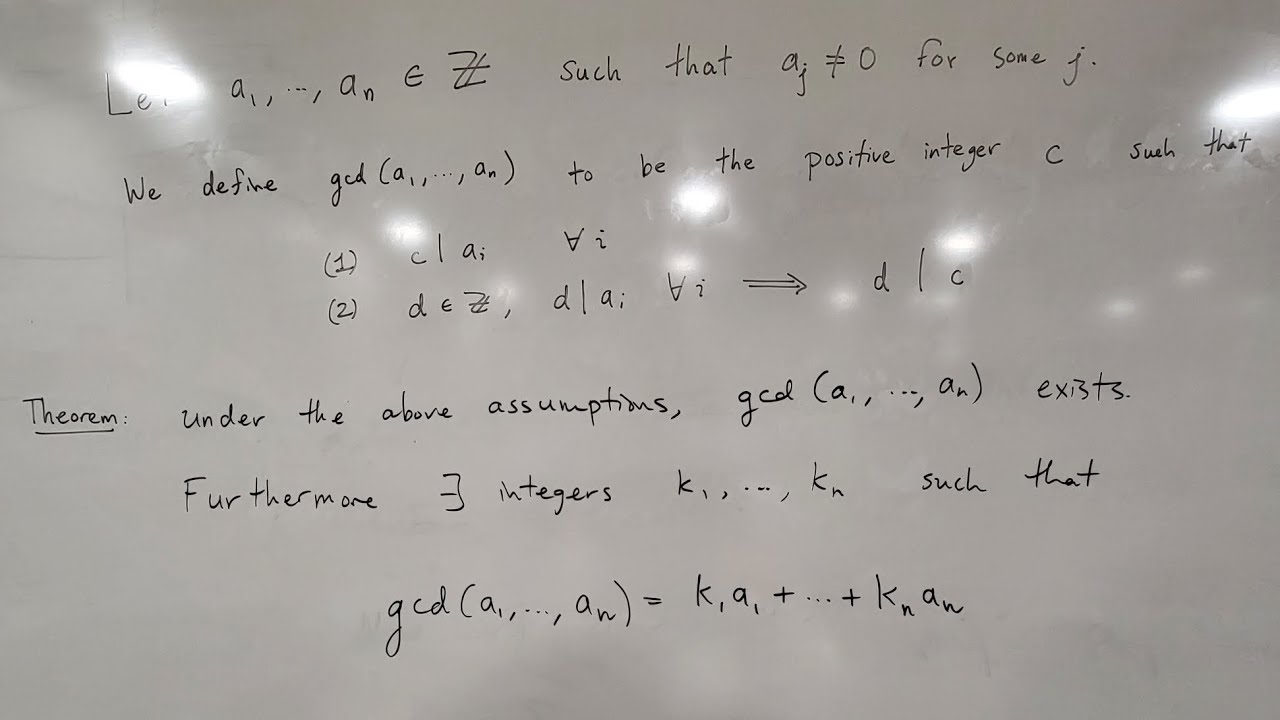 Let a₁, ..., aₙ ∈ ℤ such that aⱼ ≠ 0 for some j.
We define gcd(a₁, ..., aₙ) to be the positive integer c such that
(1) c | aᵢ ∀ i
(2) d ∈ ℤ, d | aᵢ ∀ i ⟹ d | c
Theorem: Under the above assumptions, gcd(a₁, ..., aₙ) exists.
Furthermore ∃ integers k₁, ..., kₙ such that
gcd(a₁, ..., aₙ) = k₁a₁ + ... + kₙaₙ